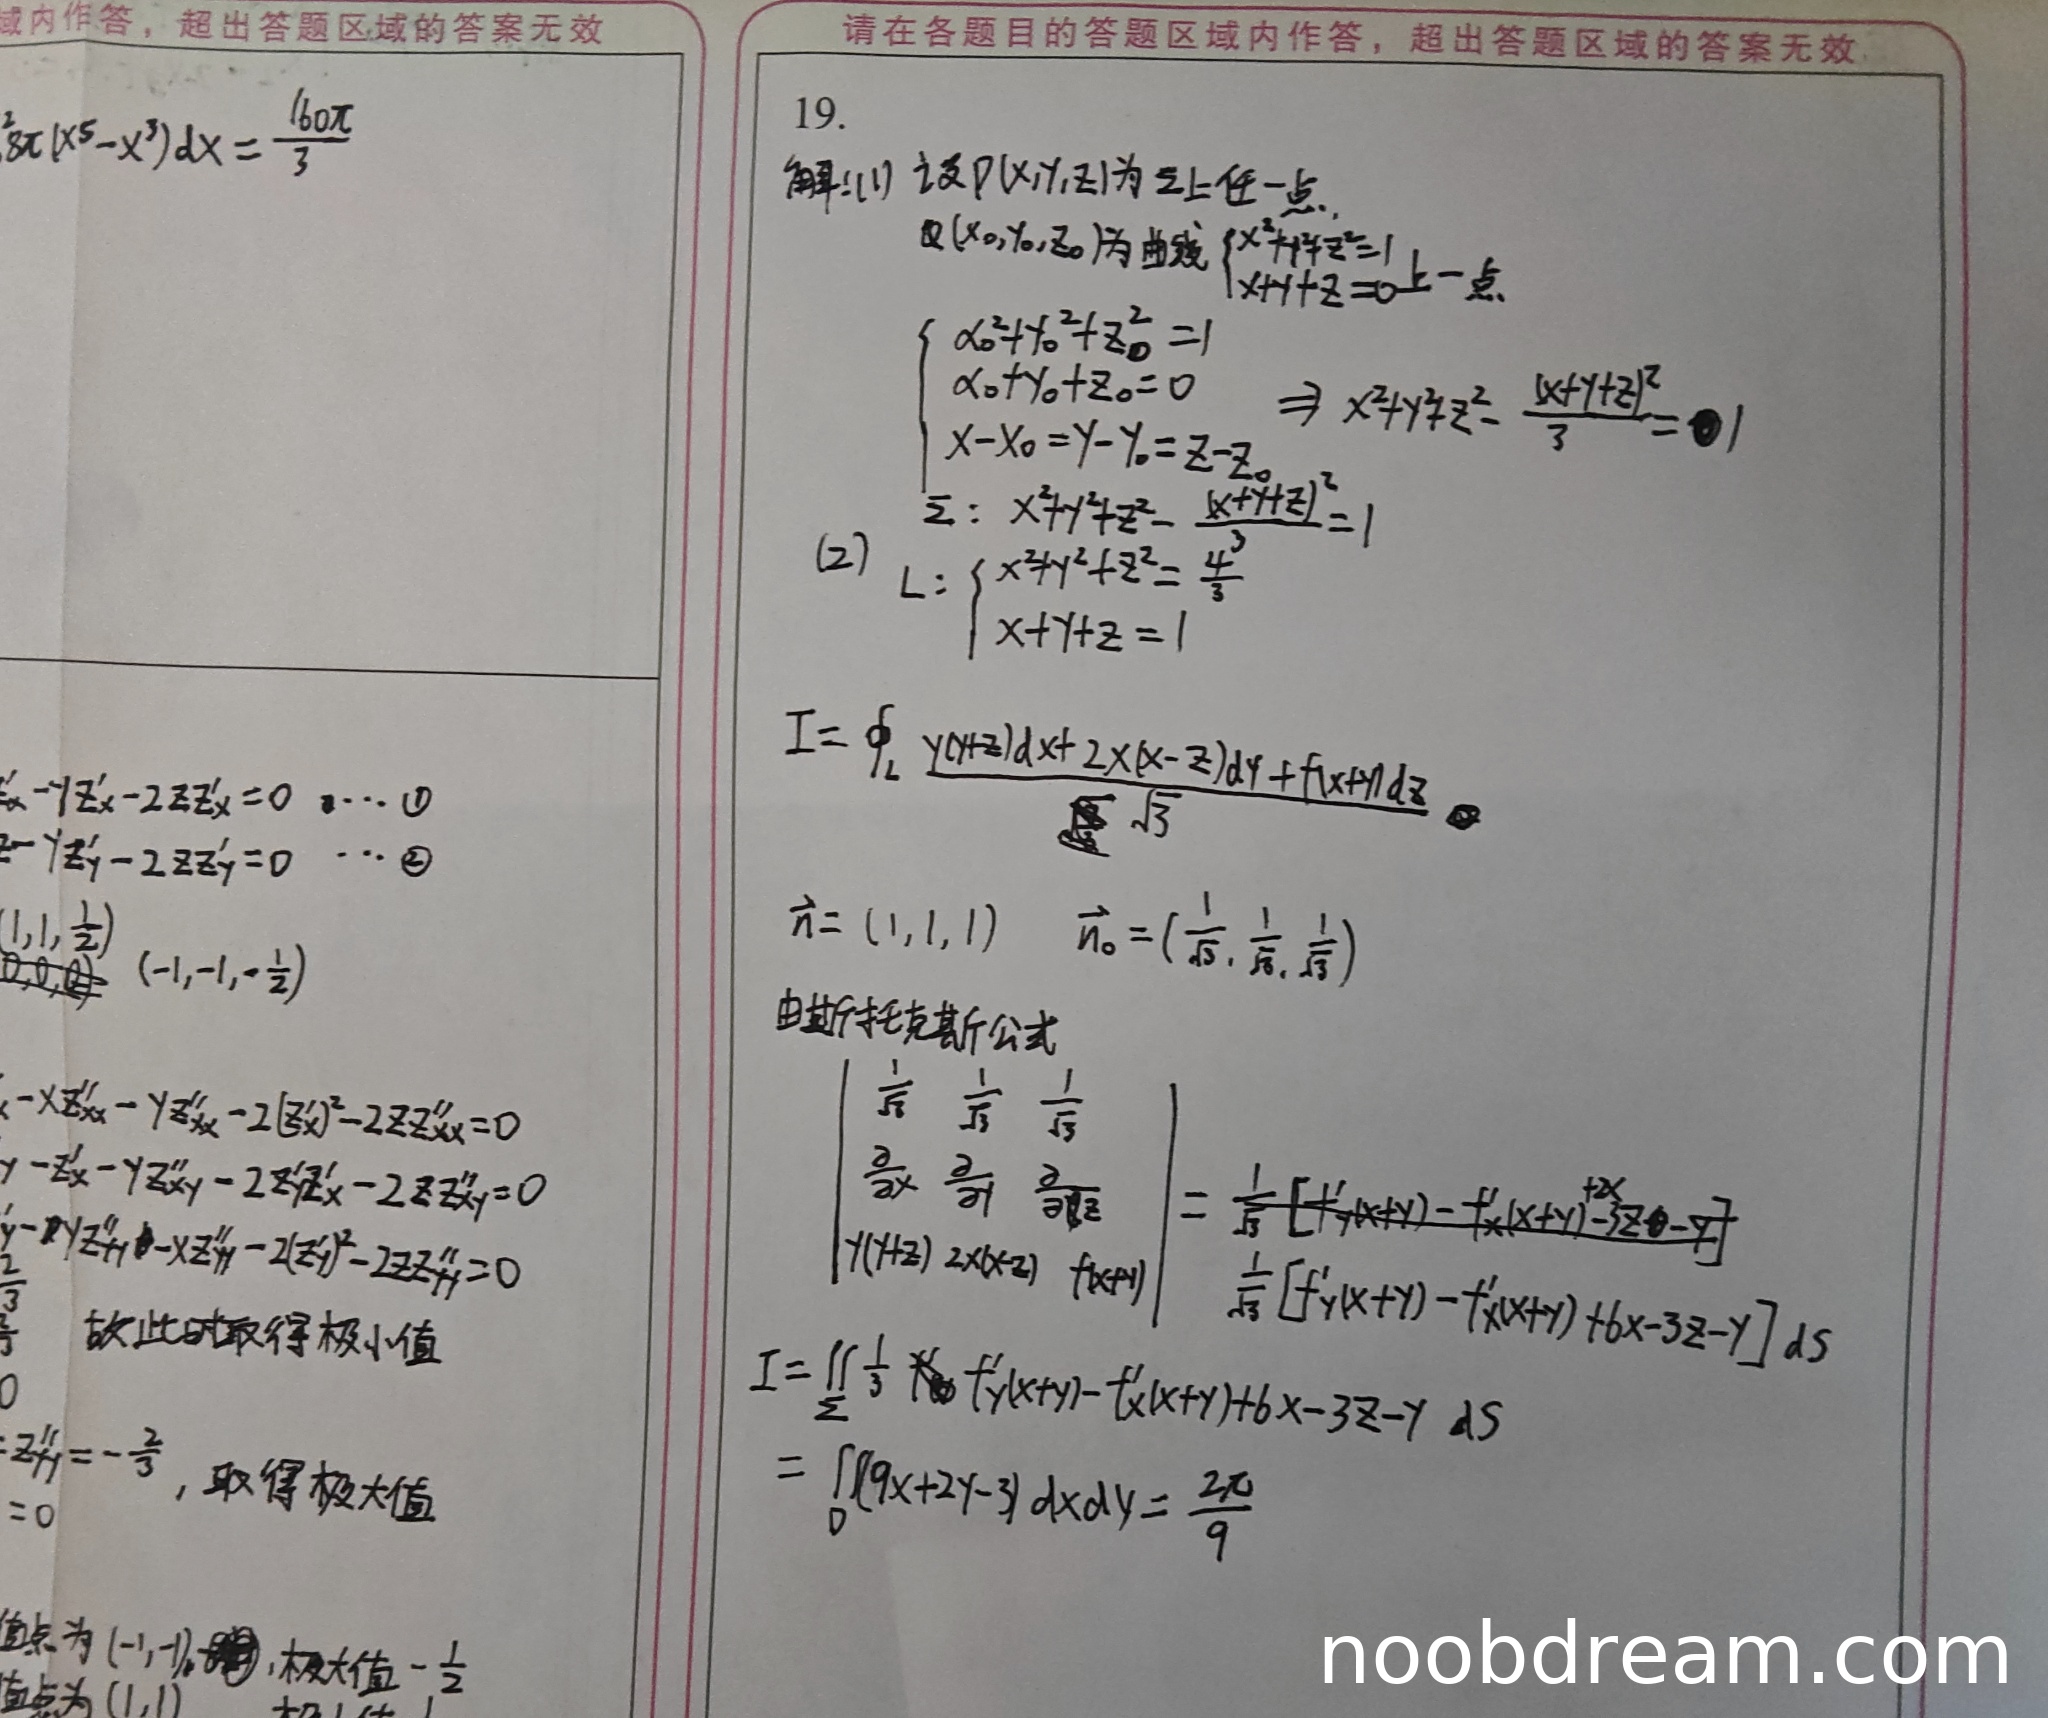 域内作答，超出答题区域的答案无效
8π(x⁵-x³)dx = 160π/3
-yz'ₓ-2zz'ₓ=0 ····①
-yz'ᵧ-2zz'ᵧ=0 ···②
(1,1,1/2)
(-1,-1,-1/2)
-xz''ₓₓ-yz''ₓₓ-2(z'ₓ)²-2zz''ₓₓ=0
-z'ₓ-yz''ₓᵧ-2z'ᵧz'ₓ-2zz''ₓᵧ=0
-yz''ᵧᵧ-xz''ᵧᵧ-2(z'ᵧ)²-2zz''ᵧᵧ=0
故此时取得极小值
=z''ᵧᵧ=-2/3，取得极大值
=0
值点为(-1,-1),极大值-1/2
值点为(1,1)
请在各题目的答题区域内作答，超出答题区域的答案无效
19.
解:(1) 设P(x,y,z)为Σ上任一点.
Q(x₀,y₀,z₀)为曲线{x²+y²+z²=1
x+y+z=0上一点
x₀²+y₀²+z₀²=1
x₀+y₀+z₀=0 ⇒ x²+y²+z²-(x+y+z)²/3=1
x-x₀=y-y₀=z-z₀
Σ: x²+y²+z²-(x+y+z)²/3=1
(2) L:{x²+y²+z²=4/3
x+y+z=1
I=∮_L y(y+z)dx+2x(x-z)dy+f(x+y)dz
√3
n⃗=(1,1,1) n⃗₀=(1/√3,1/√3,1/√3)
由斯托克斯公式
|1/√3 1/√3 1/√3|
∂/∂x ∂/∂y ∂/∂z = 1/√3[f'ᵧ(x+y)-f'ₓ(x+y)+2x-3z-y]
y(y+z) 2x(x-z) f(x+y) 1/√3[f'ᵧ(x+y)-f'ₓ(x+y)+6x-3z-y]dS
I=∬_Σ 1/3 f'ᵧ(x+y)-f'ₓ(x+y)+6x-3z-y dS
=∬_D(9x+2y-3)dxdy=2π/9
noobdream.com